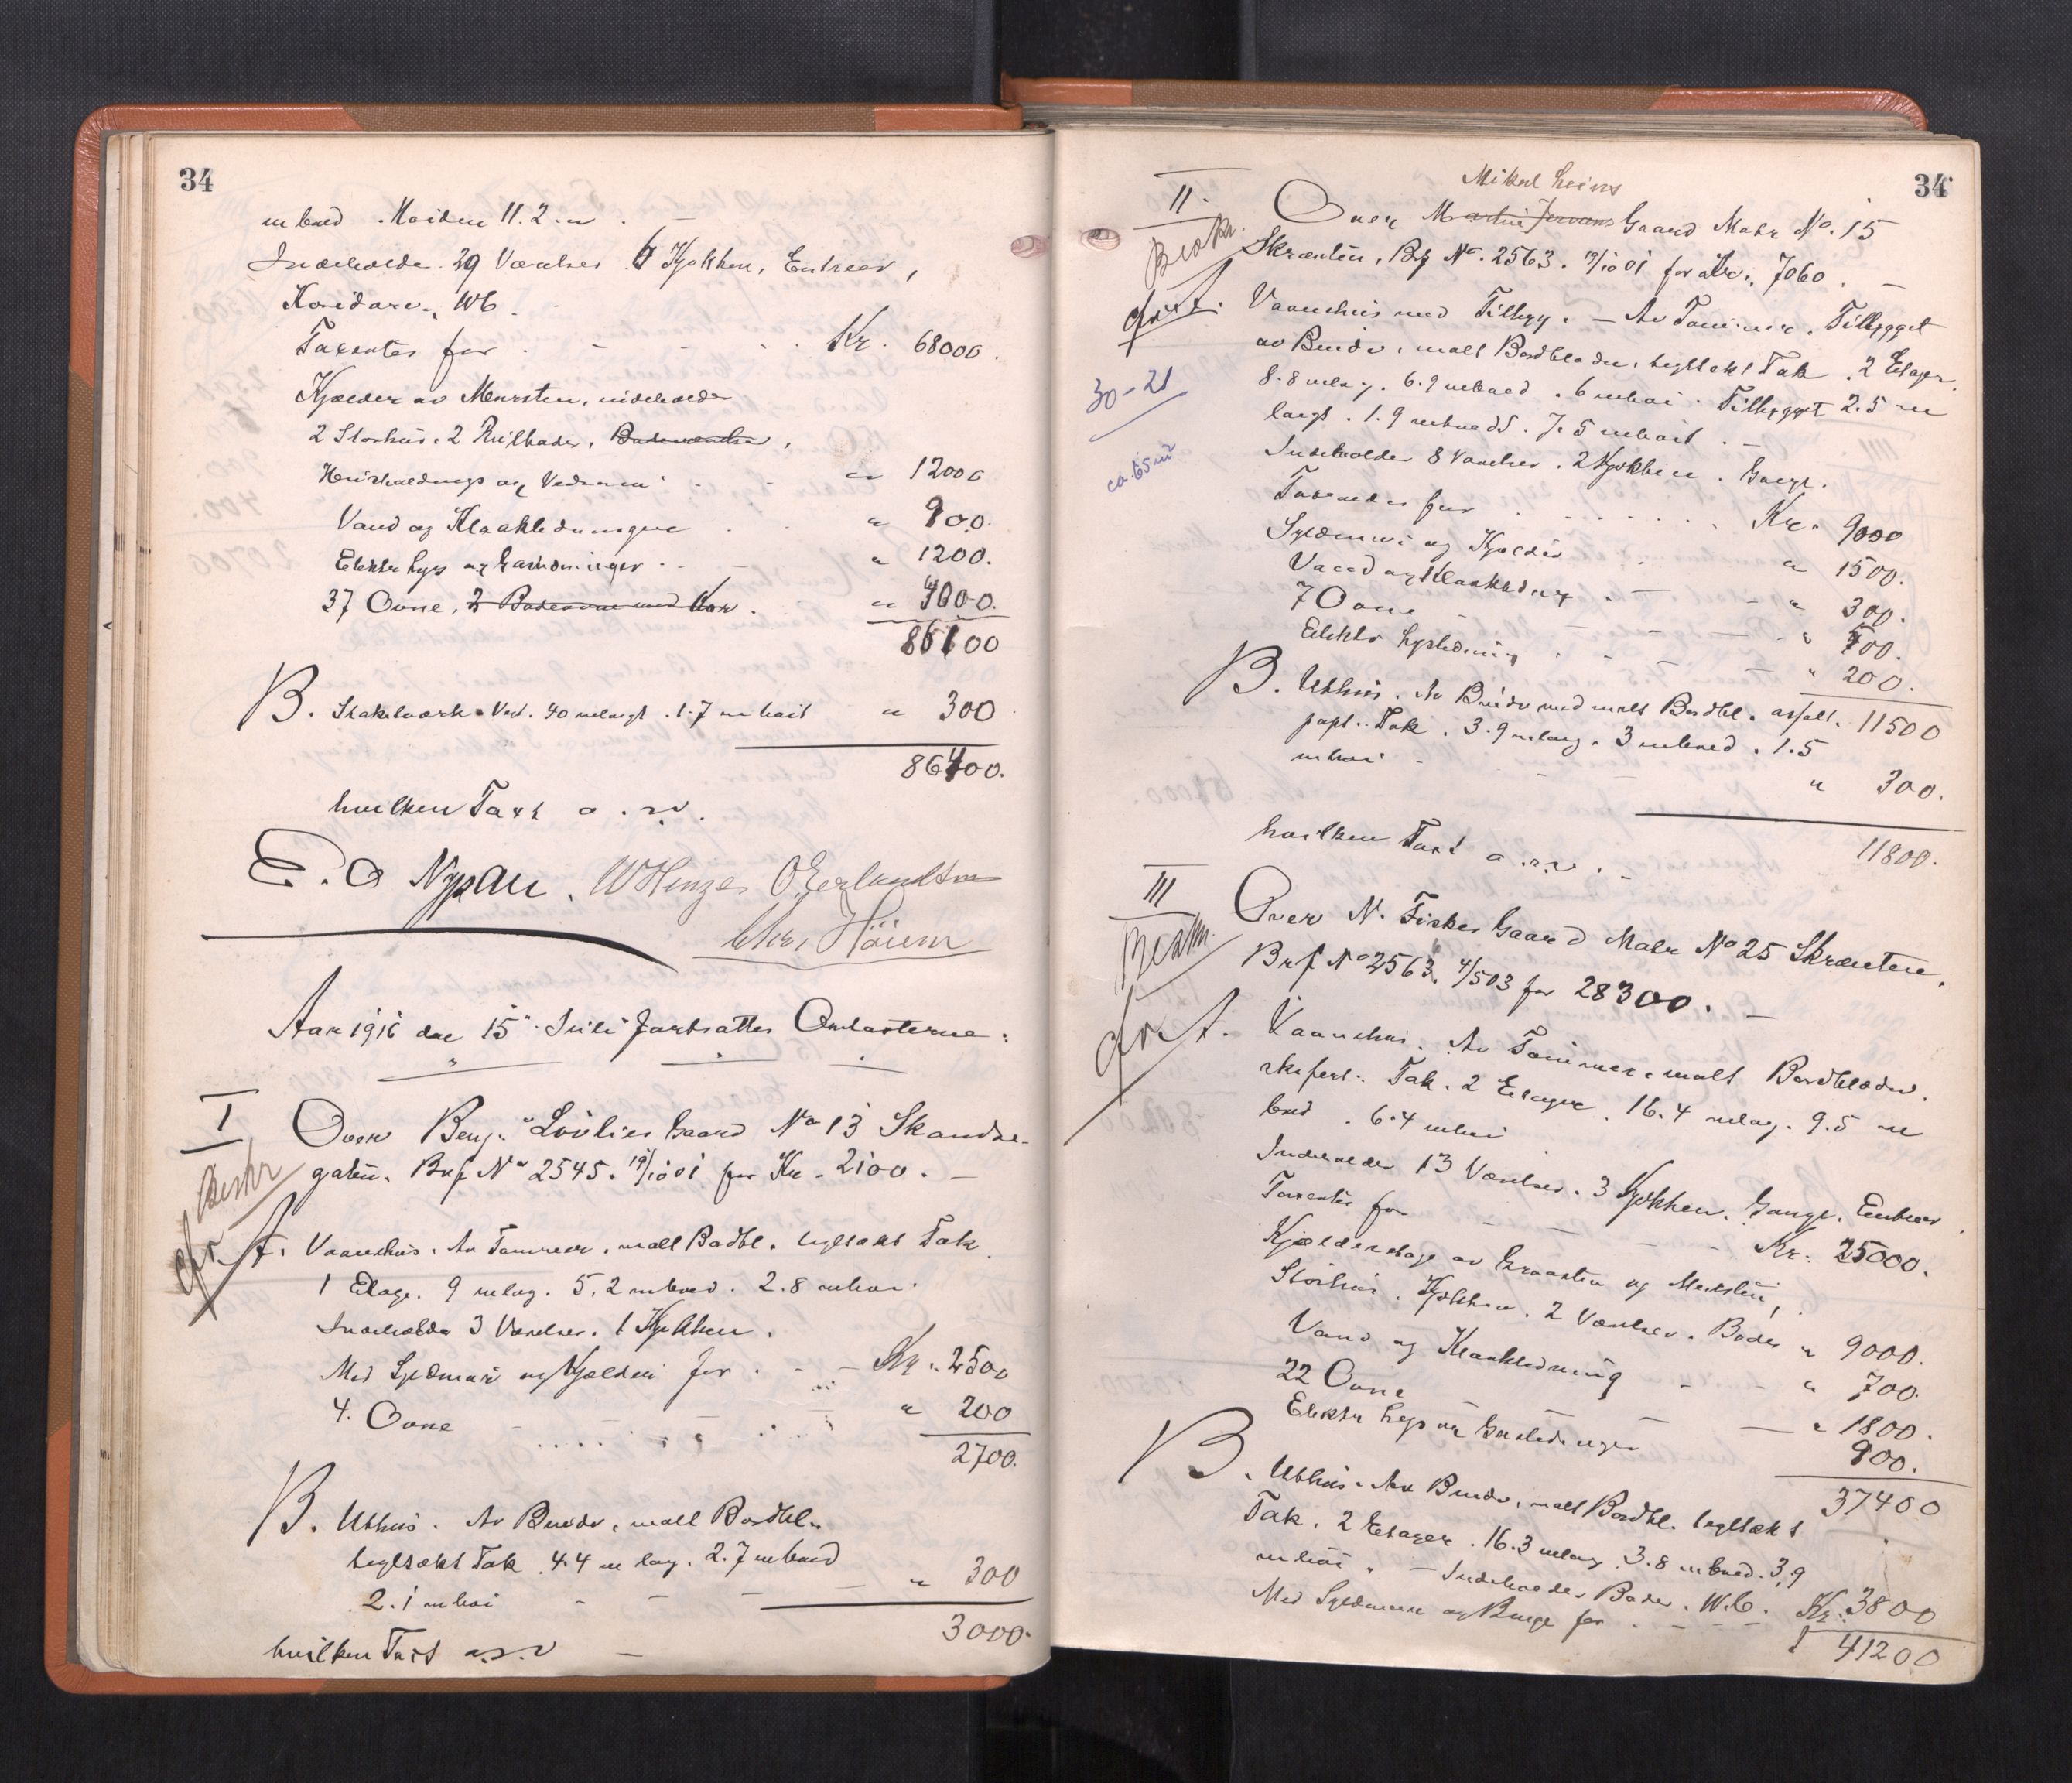 34
m bred . Høiden 11.2 m . —
Indeholder 29 Værelser 6 Kjøkken, Entreer,
Koridorer, WC.
Taxertes for . - - . . Kr. 68000.
Kjælder av Mursten, indeholder
2 Storhus. 2 Rulboder, Badeværelse,
Husholdnings og Vedrum . . " 12000
Vand og Kloakledninger . . " 900.
Elektr Lys og Gasledninger . - — " 1200.
37 Ovne, 2 Badeovne med Kar . " 4000.
86100
B. Stakitværk. Ved. 40 m langt . 1.7 m høit " 300
86400.
hvilken Taxt a. s. v.
E. O Nypan. W Hinze O. Erlandsen
Chr. Höiem
Aar 1916 den 15de Juli fortsattes Omtaxterne:
I
Beskr
Over Benj. Lövlies Gaard No 13 Skandse-
gaten. Brf No 2545. 19/10 01 for Kr. 2100. —
gfr
A. Vaanehus. Av Tømmer. malt Bodbl. teglsækt Tak
1 Etage. 9 m lag. 5.2 m bred. 2.8 m høi.
Indeholder 3 Værelser. 1 Kjøkken.
Med Syldmur og Kjælder for . - — Kr. 2500
4. Ovne - - — . . " 200
2700.
B. Uthus. Av Bindv. malt Bordbl.
teglsækt Tak 4.4 m lag. 2.7 m bred
2.1 m høi - - — — " 300
3000.
hvilken Taxt a.s.v —
34
Mikal
II.
Beskr.
Over Gaard Matr No. 15
Skrænten, Brf No. 2563. 19/10 01 for Kr. 7060. —
gfr
A. Vaanehus med Tilbyg. — Av Tømmer. Tilbygget
av Bindv. malt Bordklædn. teglsekt Tak . 2 Etager.
30-21
8.8 m lag. 6.9 m bred . 6 m høi . Tilbygget 2.5 m
langt . 1.9 m bredt . 5 m høit . —
ca. 65 m²
Indeholder 8 Værelser . 2 Kjøkken . Gange.
Taxertes for . . - - - - . Kr. 9000
Syldmur og Kjælder . " 1500.
Vand og Kloakledng . — - " 300.
7 Ovne - — - — - — " 500.
Elektr Lysledning . - - — " 200.
11500
B. Uthus. Av Bindv med malt Bordbl. asfalt.
papt. Tak . 3.9 m lang. 3 m bred . 1.5
m høi - - - " 300.
11800.
hvilken Taxt a.s.v. —
III
Beskr.
Over N. Fiskes Gaard Matr No 25 Skrænten.
Brf No 2563. 4/5 03 for 28300. —
gfr
A. Vaanehus. Av Tømmer. malt Bordklædn.
skifert. Tak. 2 Etager. 16.4 m lag. 9.5 m
bred . 6.4 m høi
Indeholder 13 Værelser. 3 Kjøkken. Gange. Entreer.
Taxertes for - — - — Kr. 25000.
Kjælderetage av Graasten og Mursten,
Storhus. Kjøkken. 2 Værelser. Boder " 9000.
Vand og Kloakledning - - " 700.
22 Ovne — — " 1800.
Elektr Lys og Gasledninger 900.
37400
B. Uthus. Av Bindv. malt Bordbl. teglsækt
Tak. 2 Etager . 16.3 m lag. 3.8 m bred. 3.9
m høi . — Indeholder Boder. W.C.
Med Syldmur og for . - - — Kr. 3800
41200